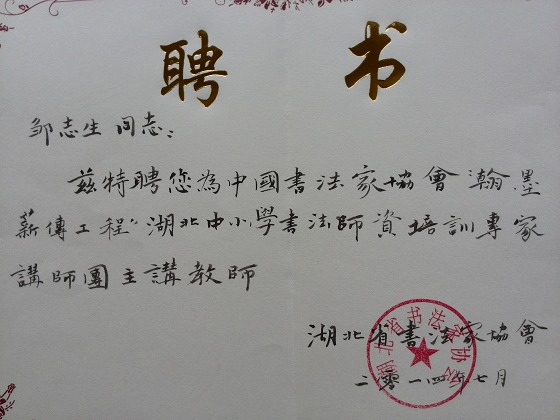 聘书
邹志生同志：
兹特聘您為中國書法家協會瀚墨
薪傳工程“湖北中小學書法師資培訓專家
講師團主講教師
湖北省書法家協會
湖北省书法家协会
二零一四年七月